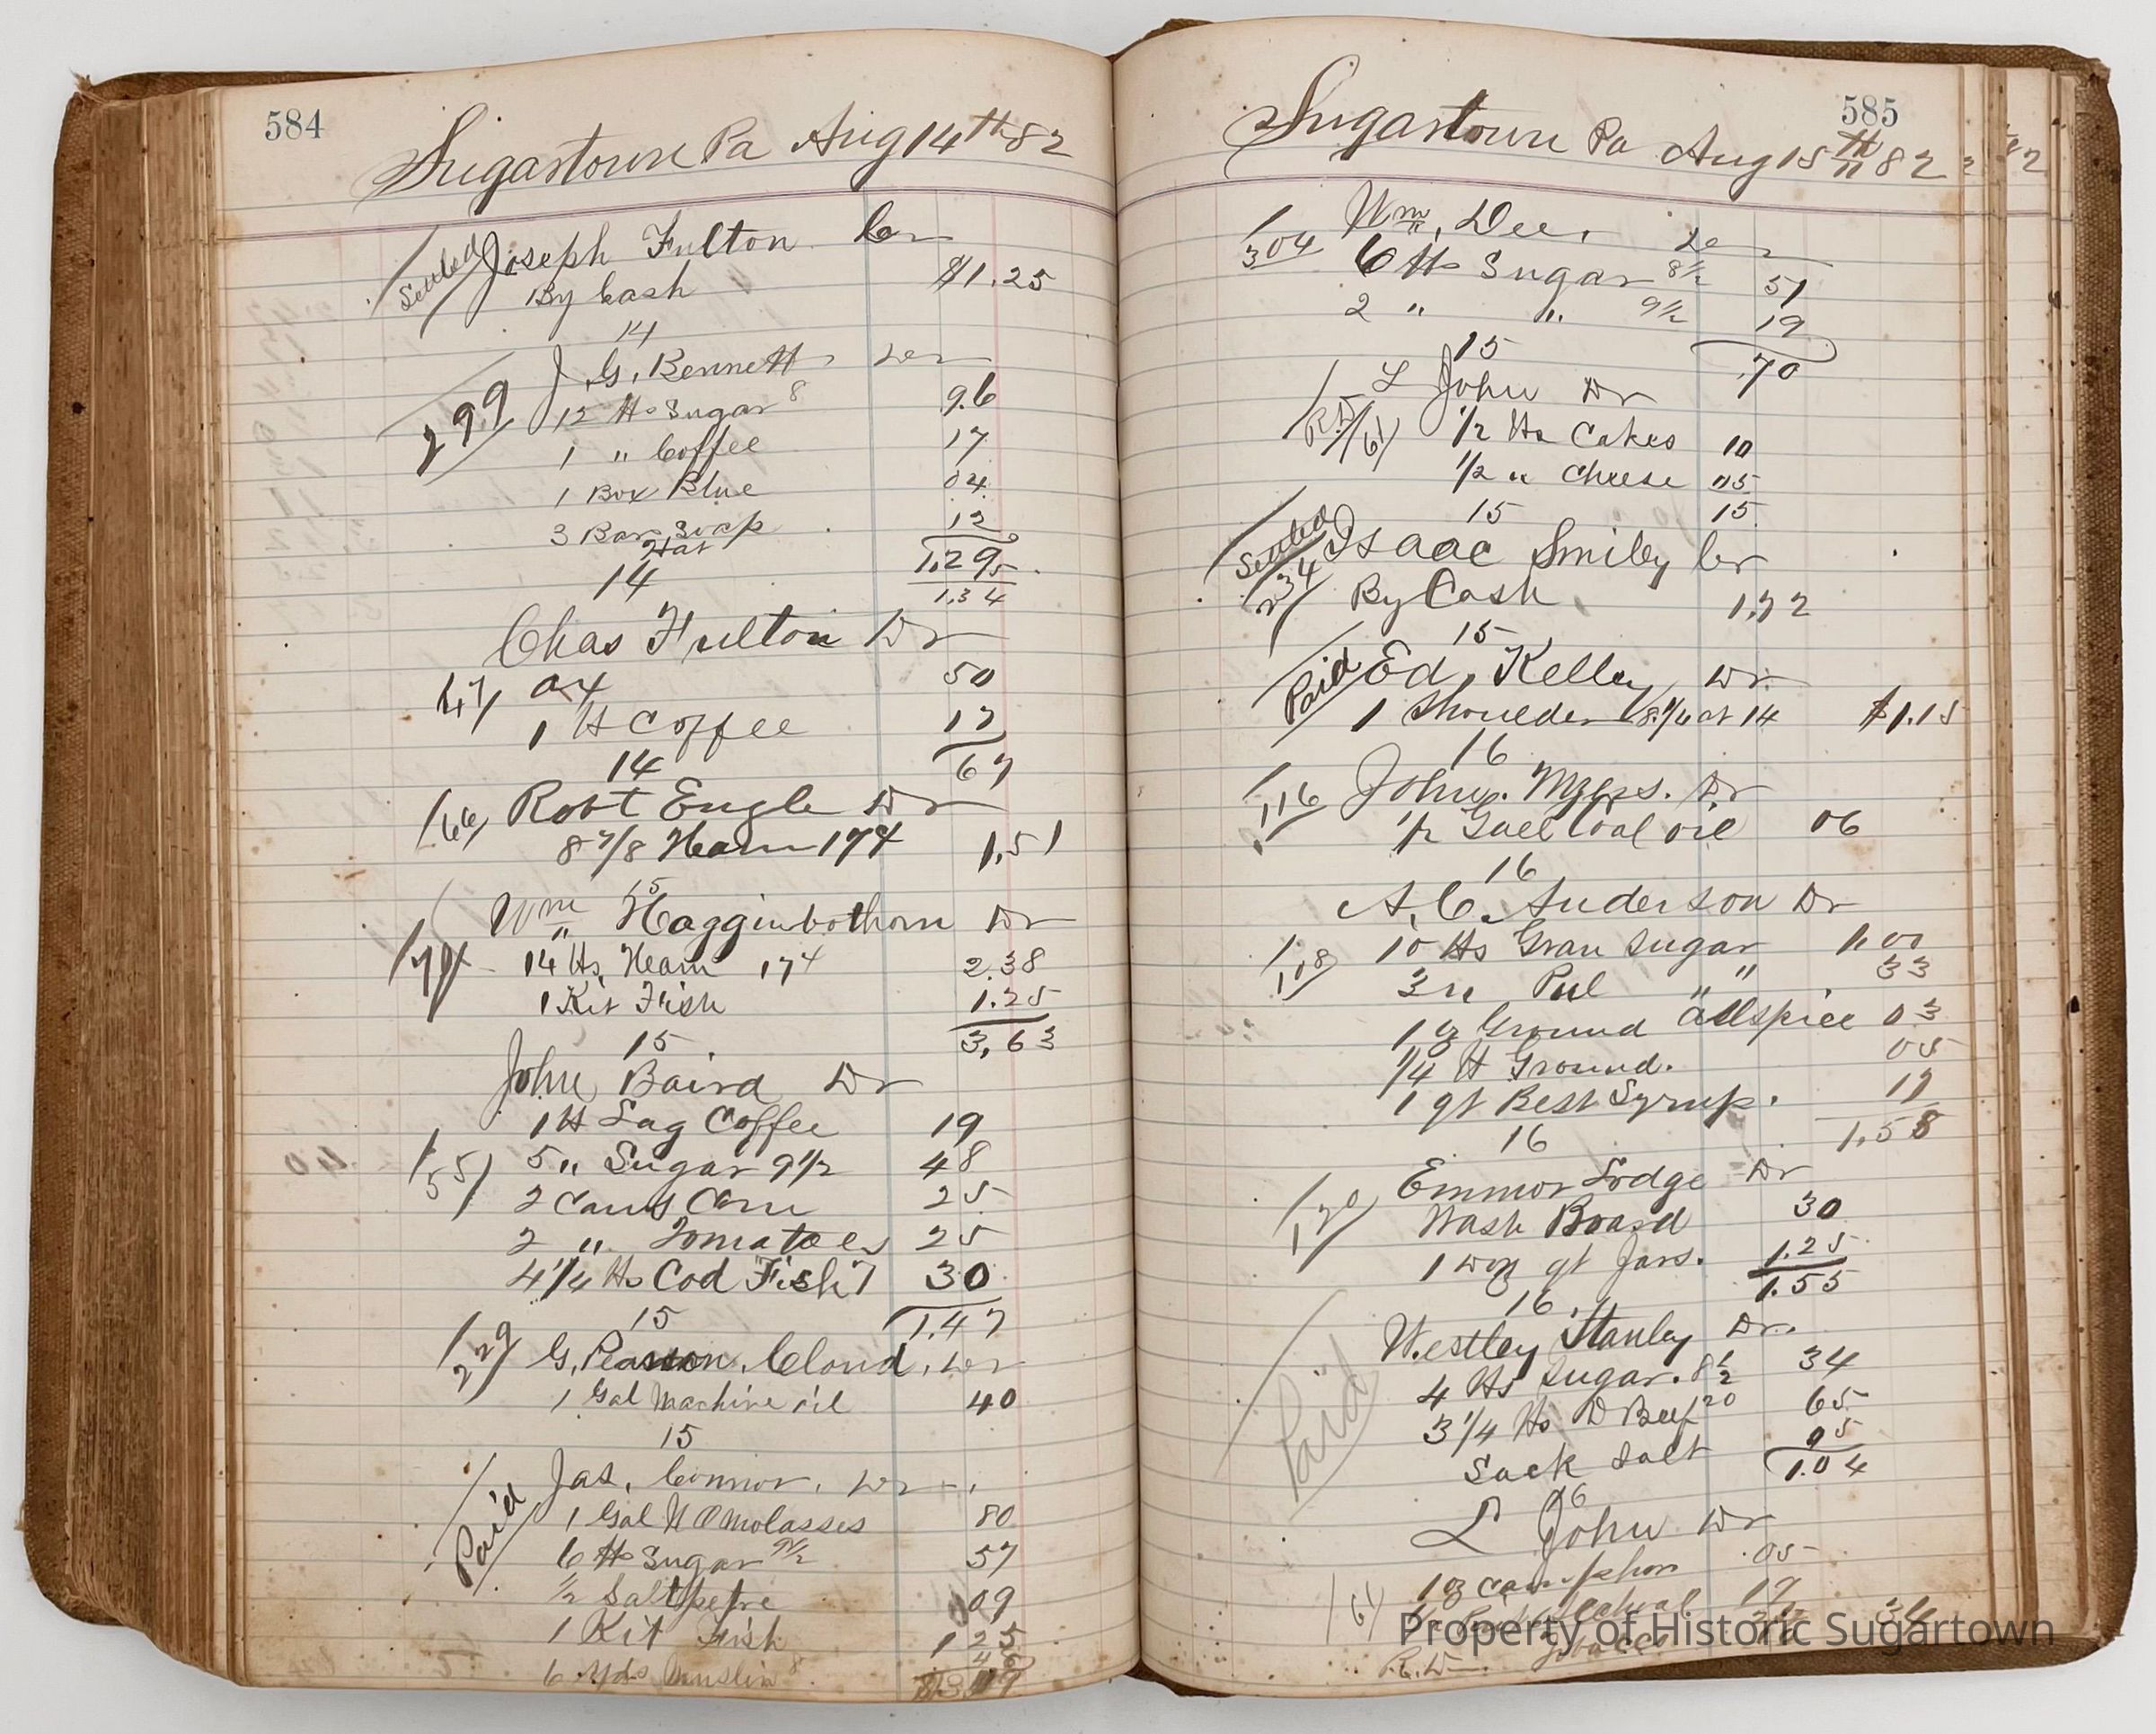 584
Sugartown Pa Aug 14th 82
Settled Joseph Fulton Cr
By Cash $1.25
14
299 J. G. Bennett Dr
12 ℔s Sugar 8 9.6
1 " Coffee 17
1 Box Blue 04
3 Bar Soap 12
Hat 1.29 5
14 1.34
Chas Fulton Dr
47 ax 50
1 ℔ Coffee 17
14 67
66 Robt Engle Dr
8 7/8 Ham 17 1.51
15
Wm Hagginbothom Dr
14 ℔s Ham 17 2.38
1 Kit Fish 1.25
15 3.63
John Baird Dr
1 ℔ Lag Coffee 19
55 5 " Sugar 9 1/2 48
2 Cans Corn 25
2 " Tomatoes 25
4 1/4 ℔s Cod Fish 7 30
15 1.47
229 G. Pearson Cloud, Dr
1 Gal Machine oil 40
15
Jas. Connor. Dr
Paid 1 Gal N O Molasses 80
6 ℔s Sugar 9 1/2 57
1/2 Saltpetre 09
1 Kit Fish 1 25
6 Yds Muslin 8
585
Sugartown Pa Aug 15th 82
304 Wm. Dee. Dr
6 ℔s Sugar 8 1/2 51
2 " " 9 1/2 19
15 .70
L John Dr
R.D. 61 1/2 ℔s Cakes 10
1/2 " Cheese 05
15 15
Settled Isaac Smiley Cr
234 By Cash 1.72
15
Paid Ed. Kelley Dr
1 Shoulder 8 1/4 at 14 $1.15
16
116 John. Myers. Dr
1/2 Gall Coal oil 06
16
A. C. Anderson Dr
108 10 ℔s Gran Sugar 1.00
3 " Pul " " 33
1 oz Ground allspice 03
1/4 ℔ Ground. 05
1 qt Best Syrup. 17
16 1.58
Emmor Lodge Dr
120 Wash Board 30
1 Doz qt Jars. 1.25
16 1.55
Westley Stanley Dr.
Paid 4 ℔s Sugar. 8 1/2 34
3 1/4 ℔s D Beef 20 65
Sack Salt 05
16 1.04
L John Dr
61 1 oz Camphor .05
R.D.
Property of Historic Sugartown